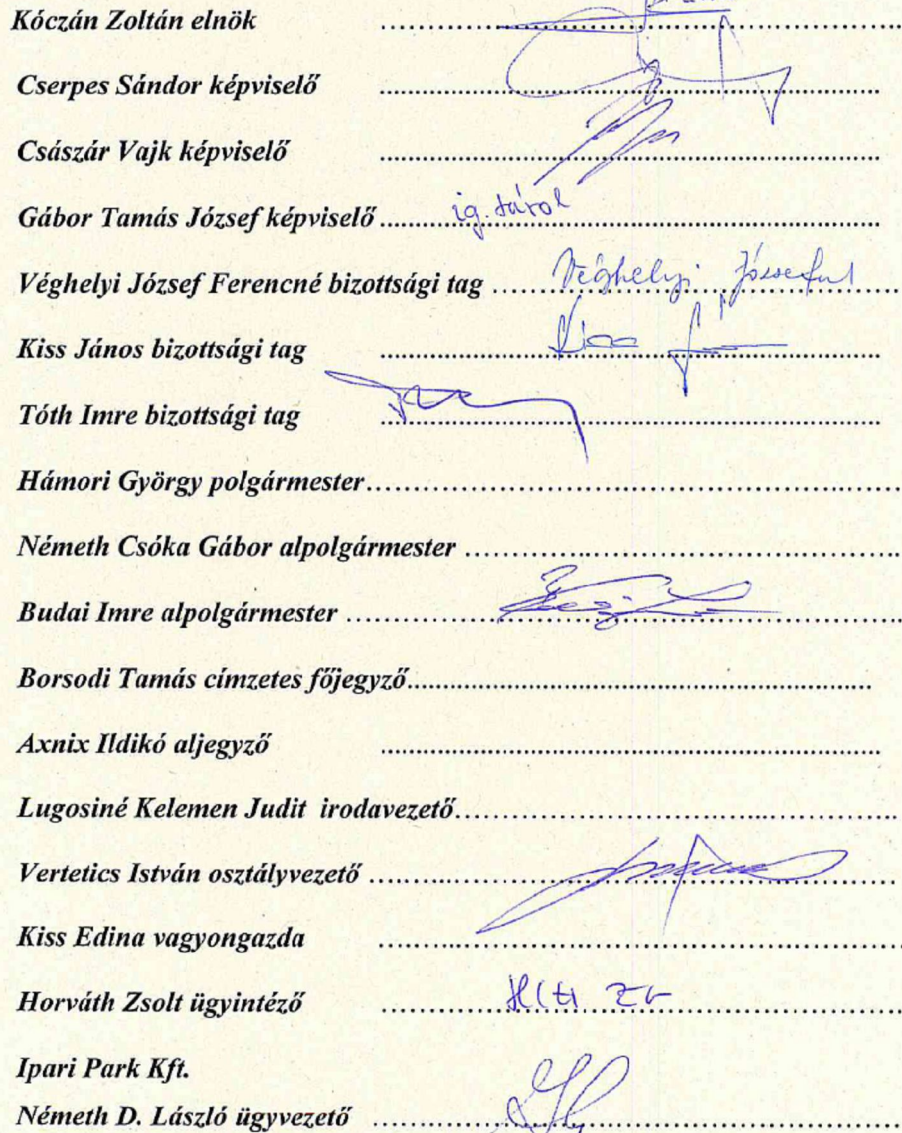 Kóczán Zoltán elnök ........................................
Cserpes Sándor képviselő ........................................
Császár Vajk képviselő ........................................
Gábor Tamás József képviselő ........ig. távol........................
Véghelyi József Ferencné bizottsági tag ...... Véghelyi Józsefné
Kiss János bizottsági tag ............ Kiss
Tóth Imre bizottsági tag ........................................
Hámori György polgármester........................................
Németh Csóka Gábor alpolgármester ........................................
Budai Imre alpolgármester ........................................
Borsodi Tamás címzetes főjegyző........................................
Axnix Ildikó aljegyző ........................................
Lugosiné Kelemen Judit irodavezető........................................
Vertetics István osztályvezető ........................................
Kiss Edina vagyongazda ........................................
Horváth Zsolt ügyintéző ........................................
Ipari Park Kft.
Németh D. László ügyvezető ........................................